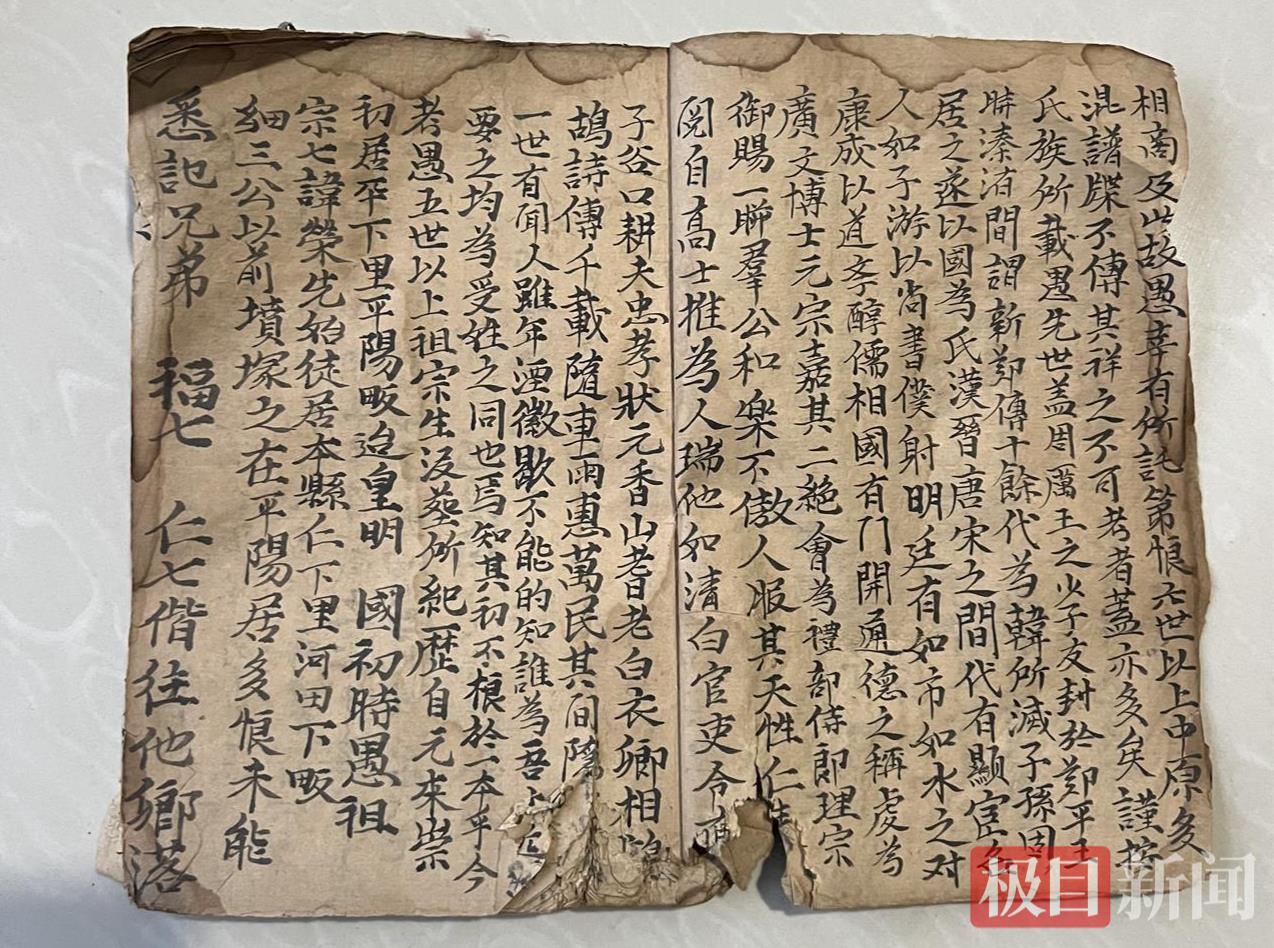 相商及此故愚幸有所託第恨六世以上中原多
混譜牒不傳其祥之不可考者蓋亦多矣謹按
氏族所載愚先世盖周厲王之少子友封於鄭平王
時溱洧間謂新鄭傳十餘代為韓所滅子孫因
居之遂以國為氏漢晉唐宋之間代有顯宦
人如子游以尚書僕射明廷有如市如水之对
康成以道孝醇儒相國有门開通德之稱虔為
廣文博士元宗嘉其二絶會為禮部侍郎理宗
御賜一聯羣公和樂不傲人服其天性仁
閱自高士推為人瑞他如清白官吏令
子谷口耕夫忠孝狀元香山耆老白衣卿相
鴣詩傳千載隨車雨惠萬民其间隱
一世有聞人雖年湮徽歇不能的知誰為吾
要之均為受姓之同也焉知其初不根於一本乎今
考愚五世以上祖宗生没塟所紀歷自元來崇
初居平下里平陽畈迨皇明 國初時愚祖
宗七諱榮先始徒居本縣仁下里河田下畈
細三公以前墳塚之在平陽居多恨未能
悉記兄弟 福七 仁七偕往他鄉落
极目新闻